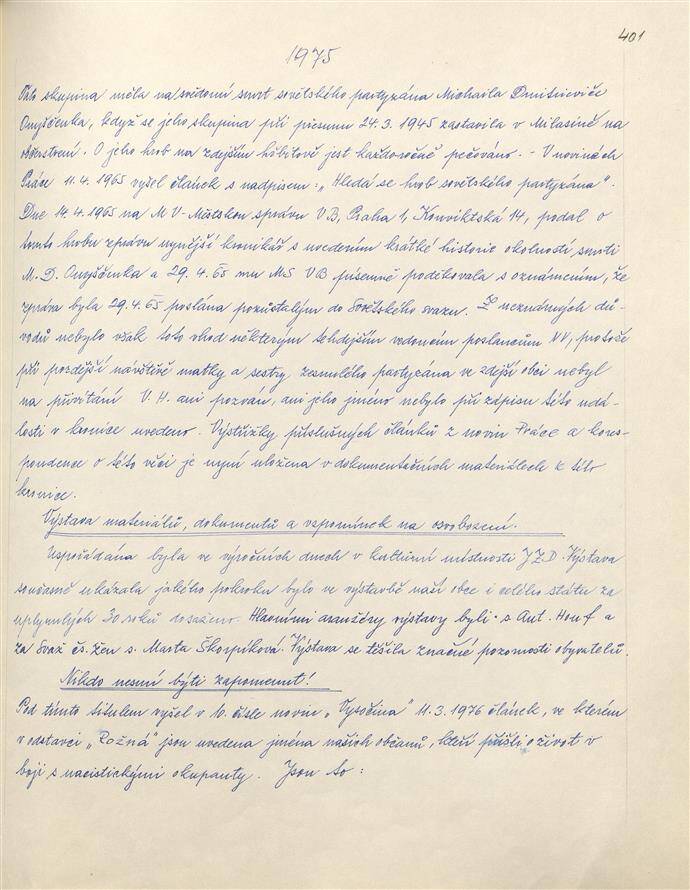 401
1975
Tato skupina měla na svědomí smrt sovětského partyzána Michaila Dmitrieviče
Onyščenka, když se jeho skupina při přesunu 24.3.1945 zastavila v Milasíně na
občerstvení. O jeho hrob na zdejším hřbitově jest každoročně pečováno. – V novinách
Práce 11.4.1965 vyšel článek s nadpisem: „Hledá se hrob sovětského partyzána".
Dne 14.4.1965 na M V-Místskou správu V B, Praha 1, Konviktská 14, podal o
tomto hrobu zprávu nynější kronikář s uvedením krátké historie okolností smrti
M. D. Onyščenka a 29.4.65 mu MS VB písemně poděkovala s oznámením, že
zpráva byla 29.4.65 poslána pozůstalým do Sovětského svazu. Z neznámých dů-
vodů nebylo však toto vhod některým tehdejším vedoucím poslancům NV, protože
při pozdější návštěvě matky a sestry zesnulého partyzána ve zdejší obci nebyl
na přivítání V. H. ani pozván, ani jeho jméno nebylo při zápisu této udá-
losti v kronice uvedeno. Výstřižky příslušných článků z novin Práce a kores-
pondence o této věci je nyní uložena v dokumentačních materiálech k této
kronice.
Výstava materiálů, dokumentů a vzpomínek na osvobození.
Uspořádána byla ve výročních dnech v kulturní místnosti JZD. Výstava
současně ukázala jakého pokroku bylo ve výstavbě naší obce i celého státu za
uplynulých 30 roků dosaženo. Hlavními aranžéry výstavy byli s. Ant. Houf a
za Svaz čs. žen s. Marta Škorpíková. Výstava se těšila značné pozornosti obyvatelů.
Nikdo nesmí býti zapomenut!
Pod tímto titulem vyšel v 10. čísle novin „Vysočina" 11.3.1976 článek, ve kterém
v odstavci „Rožná" jsou uvedena jména našich občanů, kteří přišli o život v
boji s nacistickými okupanty. Jsou to: